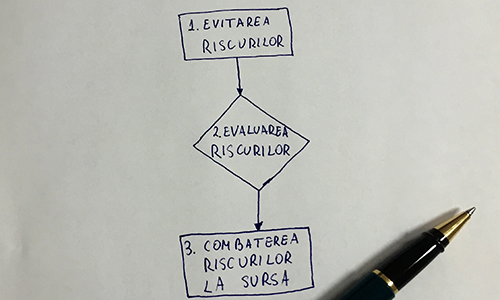 1. EVITAREA
RISCURILOR
2. EVALUAREA
RISCURILOR
3. COMBATEREA
RISCURILOR
LA SURSA